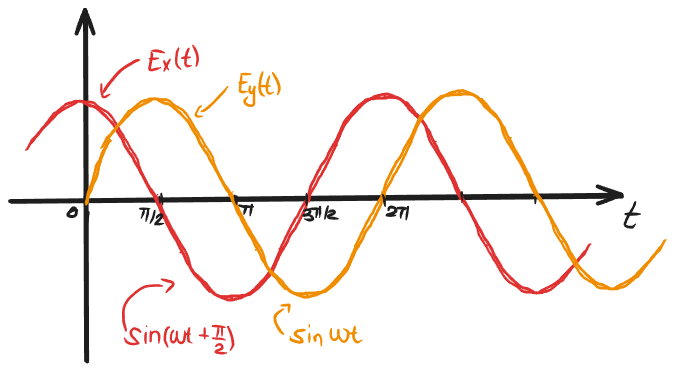 Ex(t)
Ey(t)
0 π/2 π 3π/2 2π
t
sin(ωt + π/2)
sin ωt